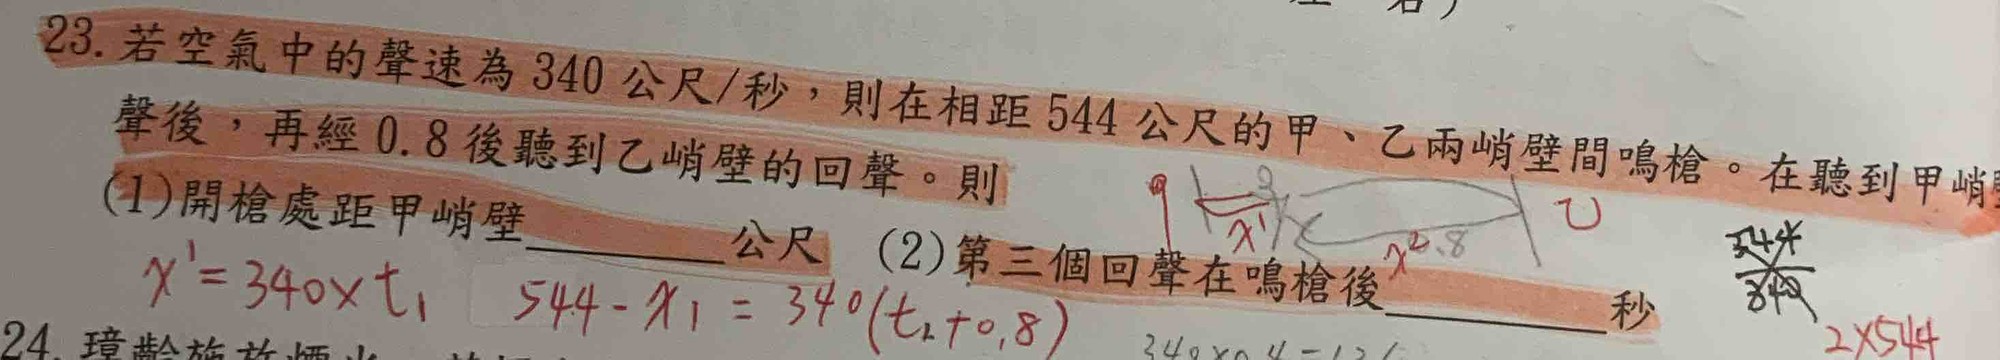 23. 若空氣中的聲速為 340 公尺/秒，則在相距 544 公尺的甲、乙兩峭壁間鳴槍。在聽到甲峭
聲後，再經 0.8 後聽到乙峭壁的回聲。則
(1)開槍處距甲峭壁________公尺 (2)第三個回聲在鳴槍後________秒
x' = 340×t₁ 544-x₁ = 340(t₂+0.8)
x' x² .8 乙
2×544
24.